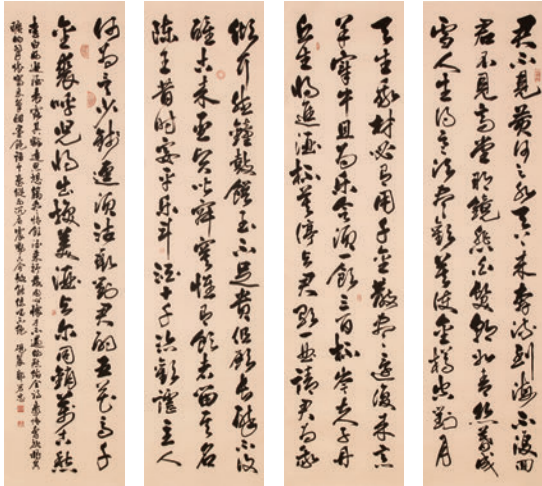 君不見黃河之水天上來奔流到海不復回
君不見高堂明鏡悲白髮朝如青絲暮成
雪人生得意須盡歡莫使金樽空對月
天生我材必有用千金散盡還復來烹
羊宰牛且為樂會須一飲三百杯岑夫子丹
丘生將進酒杯莫停與君歌一曲請君為我
傾耳聽鐘鼓饌玉不足貴但願長醉不復
醒古來聖賢皆寂寞惟有飲者留其名
陳王昔時宴平樂斗酒十千恣歡謔主人
何為言少錢還須沽取對君酌五花馬千
金裘呼兒將出換美酒與爾同銷萬古愁